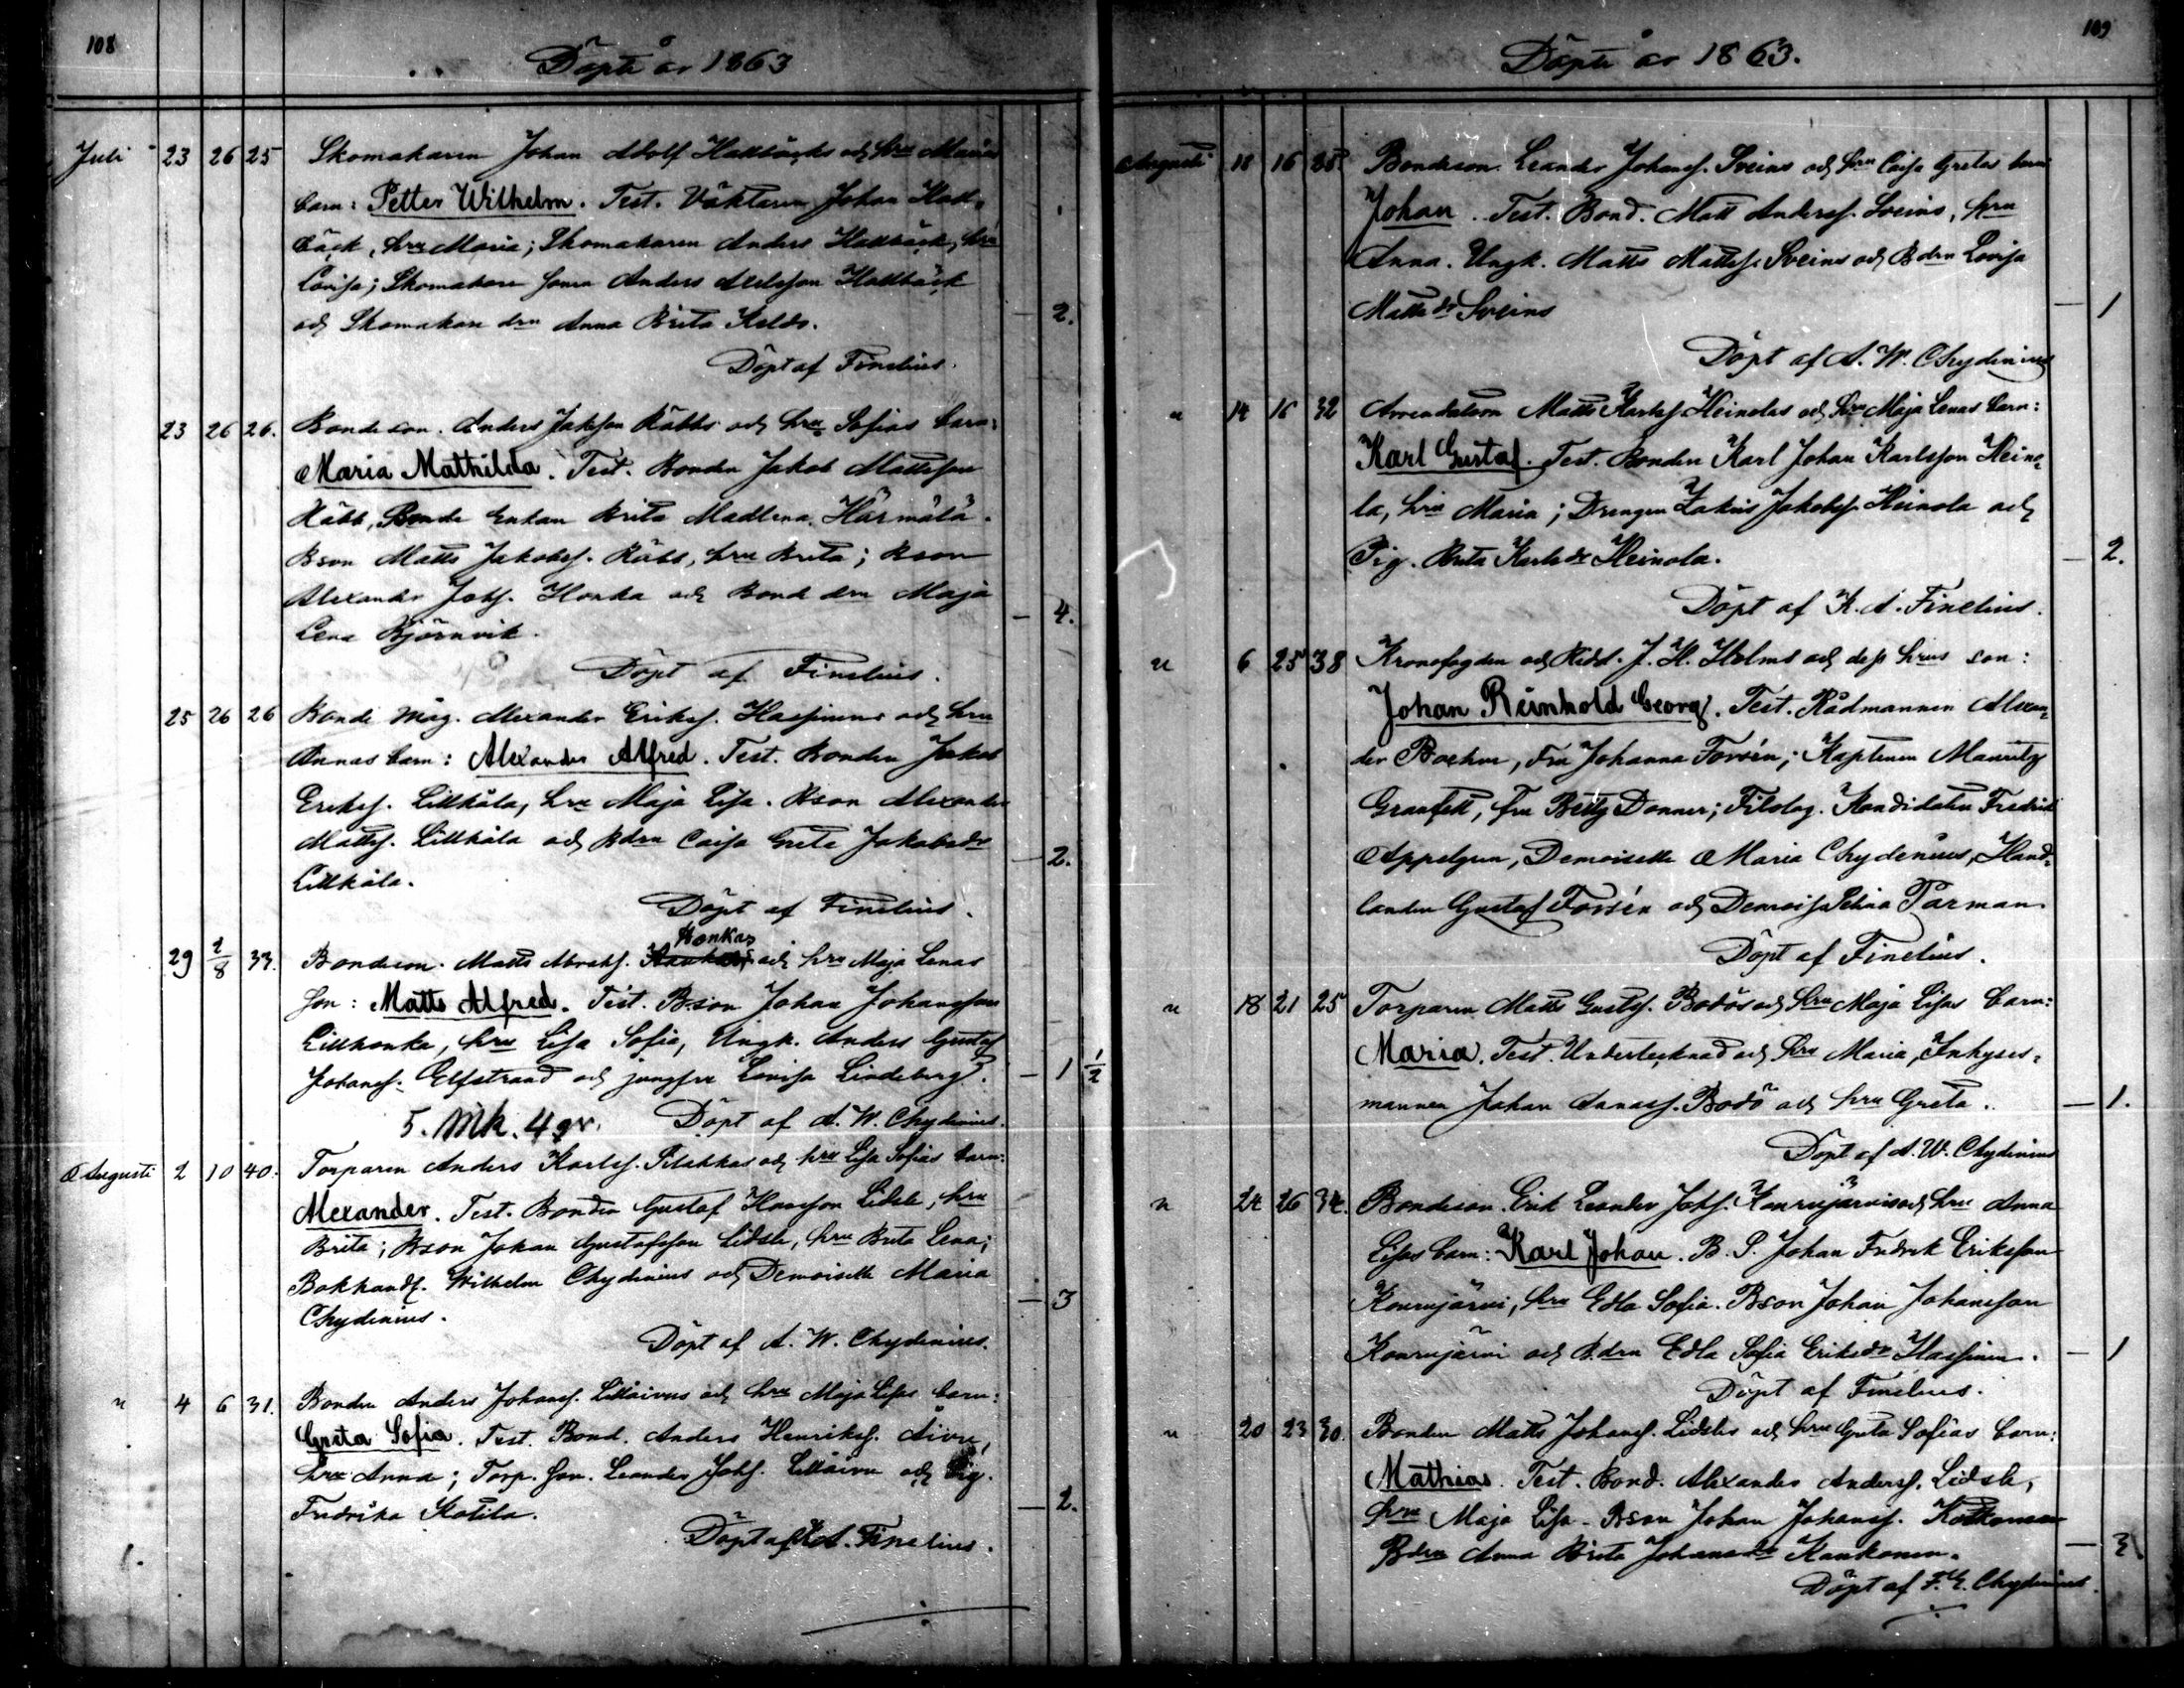 108
Döpte år 1863
Juli 23 26 25 Skomakaren Johan Adolf Hallbäcks och hru Marias
barn: Petter Wilhelm. Test. Väktaren Johan Hall-
bäck, hru Maria; Skomakaren Anders Hallbäck, hru
Lovisa; Skomakare sonen Anders Hallbäck
och Skomakare drn Anna Brita 2.
Döpt af Finelius.
23 26 26. Bondeson. Anders Jakssson Räbbs och hru Sofias barn:
Maria Mathilda. Test. Bonden Jakob Mattsson
Räbb, Bonde Enkan Brita Madlena Härmälä.
Bson Matts Jakobss. Räbb, hru Brita; Bson
Alexander Johss. Honka och Bond drn Maja 4.
Lena Björnvik.
Döpt af Finelius.
25 26 26 Bonde måg. Alexander Erikss. Hassinens och hru
Annas barn: Alexander Alfred. Test. Bonden Jakob
Erikss. Lillkåla, hru Maja Lisa. Bson Alexander
Mattss. Lillkåla och Bdrn Caisa Greta Jakobsdr 2.
Lillkåla.
Döpt af Finelius.
Honkas
29 2/8 33. Bondeson. Matts Abrahss. och hru Maja Lenas
son: Matts Alfred. Test. Bson Johan Johansson
Lillhonka, hru Lisa Sofia, Ungk. Anders Gustaf
Johanss. Elfstrand och jungfru Lovisa Lindeberg. 1 1/2
5. Mk. 4 gr. Döpt af A. W. Chydenius.
Augusti 2 10 40. Torparen Anders Karlss. och hru Lisa Sofias barn:
Alexander. Test. Bonden Gustaf Hansson Lidsle, hru
Brita; Bson Johan Gustafsson Lidsle, hru Brita Lena;
Bokhandl. Wilhelm Chydenius och Demoiselle Maria 3
Chydenius.
Döpt af A. W. Chydenius.
" 4 6 31. Bonden Anders Johanss. Lillåivus och hru Maja Lisas barn:
Greta Sofia. Test. Bond. Anders Henrikss. Åivu,
hru Anna; Torp. son. Leander Johss. Lillåivu och Pig.
Fredrika Kotila. 2.
Döpt af K. A. Finelius.
109
Döpte år 1863.
Augusti 16 Bondeson. Leander Johanss. Sveins och hru Caisa Gretas barn
Johan. Test. Bond. Matt Anderss. Sveins, hru
Anna. Ungk. Matts Mattss. Sveins och Bdrn Lovisa
Mattsdr Sveins 1
Döpt af A. W. Chydenius
" 14 16 32 Arrendatorn Matts Karlss. Heinolas och hru Maja Lenas barn:
Karl Gustaf. Test. Bonden Karl Johan Karlsson Heino-
la, hru Maria; Drengen Jakobss. Heinola och
Pig. Brita Karlsdr Heinola. 2.
Döpt af K. A. Finelius.
" 6 25 38 Kronofogden och Ridd. J. H. Holms och dess hrus son:
Johan Reinhold Georg. Test. Rådmannen Alexan-
der Boehm, Fru Johanna Forsén; Kaptenen Mauritz
Granfelt, Fru Betty Donner; Filolog. Kandidaten Fredrik
Appelgren, Demoiselle Maria Chydenius, Hand-
landen Gustaf Forsén och Demois. Parman
Döpt af Finelius.
" 18 21 25 Torparen Matts Gustfs. Bodös och hru Maja Lisas barn:
Maria. Test. Undertecknad och hru Maria, Inhyses-
mannen Johan Bodö och hru Greta. 1.
Döpt af A. W. Chydenius
" 24 26 34. Bondeson. Erik Leander Johss. Konrujärvis och hru Anna
Lisas barn: Karl Johan. B. S. Johan Fredrik Eriksson
Konrujärvi, hru Edla Sofia. Bson Johan Johansson
Konrujärvi och Bdrn Edla Sofia Eriksdr Hassinen. 1
Döpt af Finelius.
" 20 23 30. Bonden Matts Johanss. Lidsles och hru Greta Sofias barn:
Mathias. Test. Bond. Alexander Anderss. Lidsle,
hru Maja Lisa. Bson Johan Johanss.
Bdrn Anna Brita Johansdr Kaukonen.
Döpt af F. E. Chydenius.